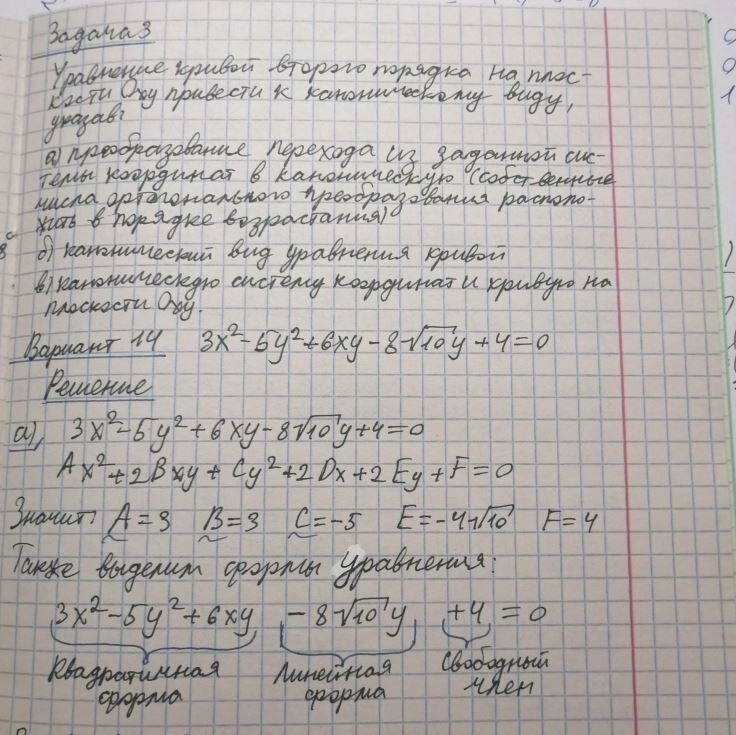 Задача 3
Уравнение кривой второго порядка на плос-
кости Oxy привести к каноническому виду,
указав:
а) преобразование перехода из заданной сис-
темы координат в каноническую (собственные
числа ортогонального преобразования располо-
жить в порядке возрастания)
б) канонический вид уравнения кривой
в) каноническую систему координат и кривую на
плоскости Oxy.
Вариант 14 3x²-5y²+6xy-8√10y+4=0
Решение
а) 3x²-5y²+6xy-8√10y+4=0
Ax²+2Bxy+Cy²+2Dx+2Ey+F=0
Значит: A=3 B=3 C=-5 E=-4√10 F=4
Также выделим формы уравнения:
3x²-5y²+6xy -8√10y +4 = 0
Квадратичная Линейная Свободный
форма форма член